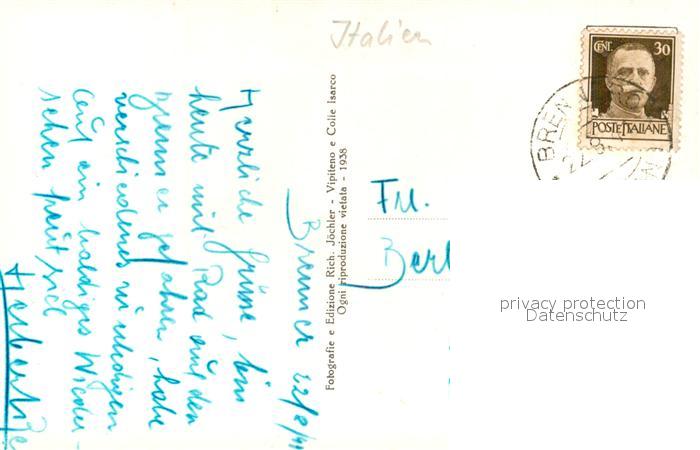 Italien
CENT. 30
POSTE ITALIANE
BREN
22.8.
Brenner 22/8/41
Herzliche Grüsse, bin
heute mit Rad auf den
Brenner gefahren, habe
verschiedenes zu erledigen
Auf ein baldiges Wieder-
sehen freut sich
Fotografie e Edizione Rich. Jöchler - Vipiteno e Colle Isarco
Ogni riproduzione vietata - 1938
Frl.
Berl
privacy protection
Datenschutz